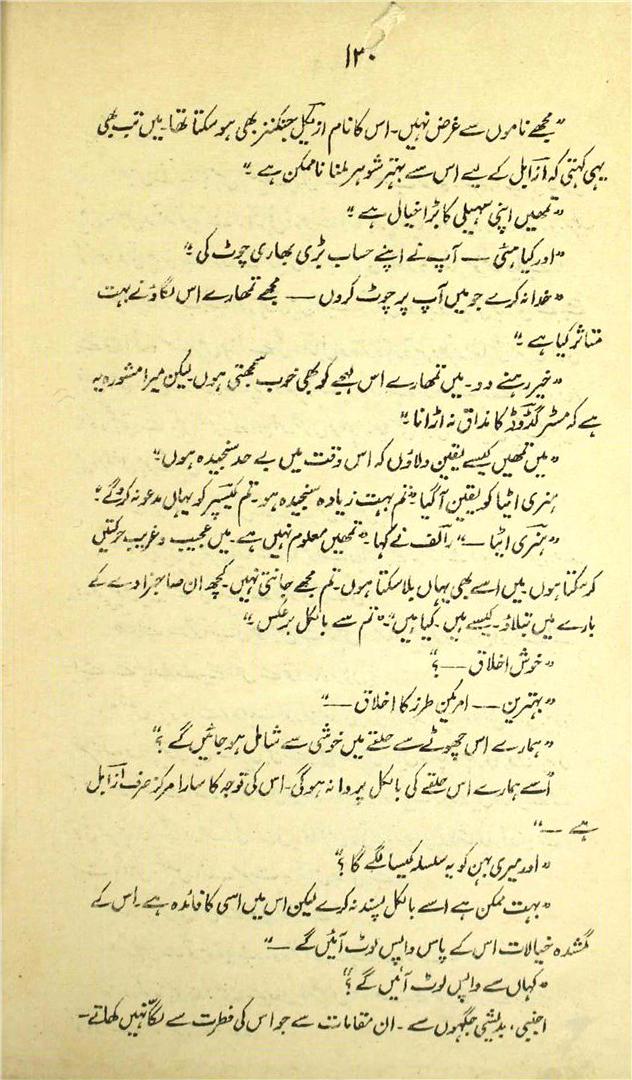 ۱۳۰
"مجھے ناموں سے غرض نہیں۔ اس کا نام ازیکل جنکنز بھی ہو سکتا تھا۔ میں تب بھی
یہی کہتی کہ ازابل کے لیے اس سے بہتر شوہر ملنا ناممکن ہے۔"
"تمھیں اپنی سہیلی کا بڑا خیال ہے۔"
"اور کیا ہٹی — آپ نے اپنے حساب بڑی بھاری چوٹ کی۔"
"خدا نہ کرے جو میں آپ پر چوٹ کروں — مجھے تمھارے اس لگاؤ نے بہت
متاثر کیا ہے۔"
"خیر رہنے دو۔ میں تمھارے اس لہجے کو بھی خوب سمجھتی ہوں۔ لیکن میرا مشورہ یہ
ہے کہ مسٹر گڈوڈ کا مذاق نہ اڑانا۔"
"میں تمھیں کیسے یقین دلاؤں کہ اس وقت میں بے حد سنجیدہ ہوں۔"
ہنری اٹیا کو یقین آ گیا۔ "تم بہت زیادہ سنجیدہ ہو۔ تم کیسپر کو یہاں مدعو نہ کرو گے۔"
"ہنری اٹیا —" رالف نے کہا۔ "تمھیں معلوم نہیں ہے۔ میں عجیب و غریب حرکتیں
کر سکتا ہوں۔ میں اسے بھی یہاں بلا سکتا ہوں۔ تم مجھے جانتی نہیں۔ کچھ ان صاحبزادے کے
بارے میں بتلاؤ۔ کیسے ہیں۔ کیا ہیں۔" "تم سے بالکل برعکس۔"
"خوش اخلاق — ؟"
"بہترین — امریکن طرز کا اخلاق —"
"ہمارے اس چھوٹے سے حلقے میں خوشی سے شامل ہو جائیں گے ؟"
اُسے ہمارے اس حلقے کی بالکل پروا نہ ہوگی۔ اس کی توجہ کا سارا مرکز صرف ازابل
ہے —"
"اور میری بہن کو یہ سلسلہ کیسا لگے گا ؟"
"بہت ممکن ہے اسے بالکل پسند نہ کرے لیکن اس میں اسی کا فائدہ ہے۔ اس کے
گمشدہ خیالات اس کے پاس واپس لوٹ آئیں گے —"
"کہاں سے واپس لوٹ آئیں گے ؟"
اجنبی، بدیشی جگہوں سے۔ ان مقامات سے جو اس کی فطرت سے لگّا نہیں کھاتے۔